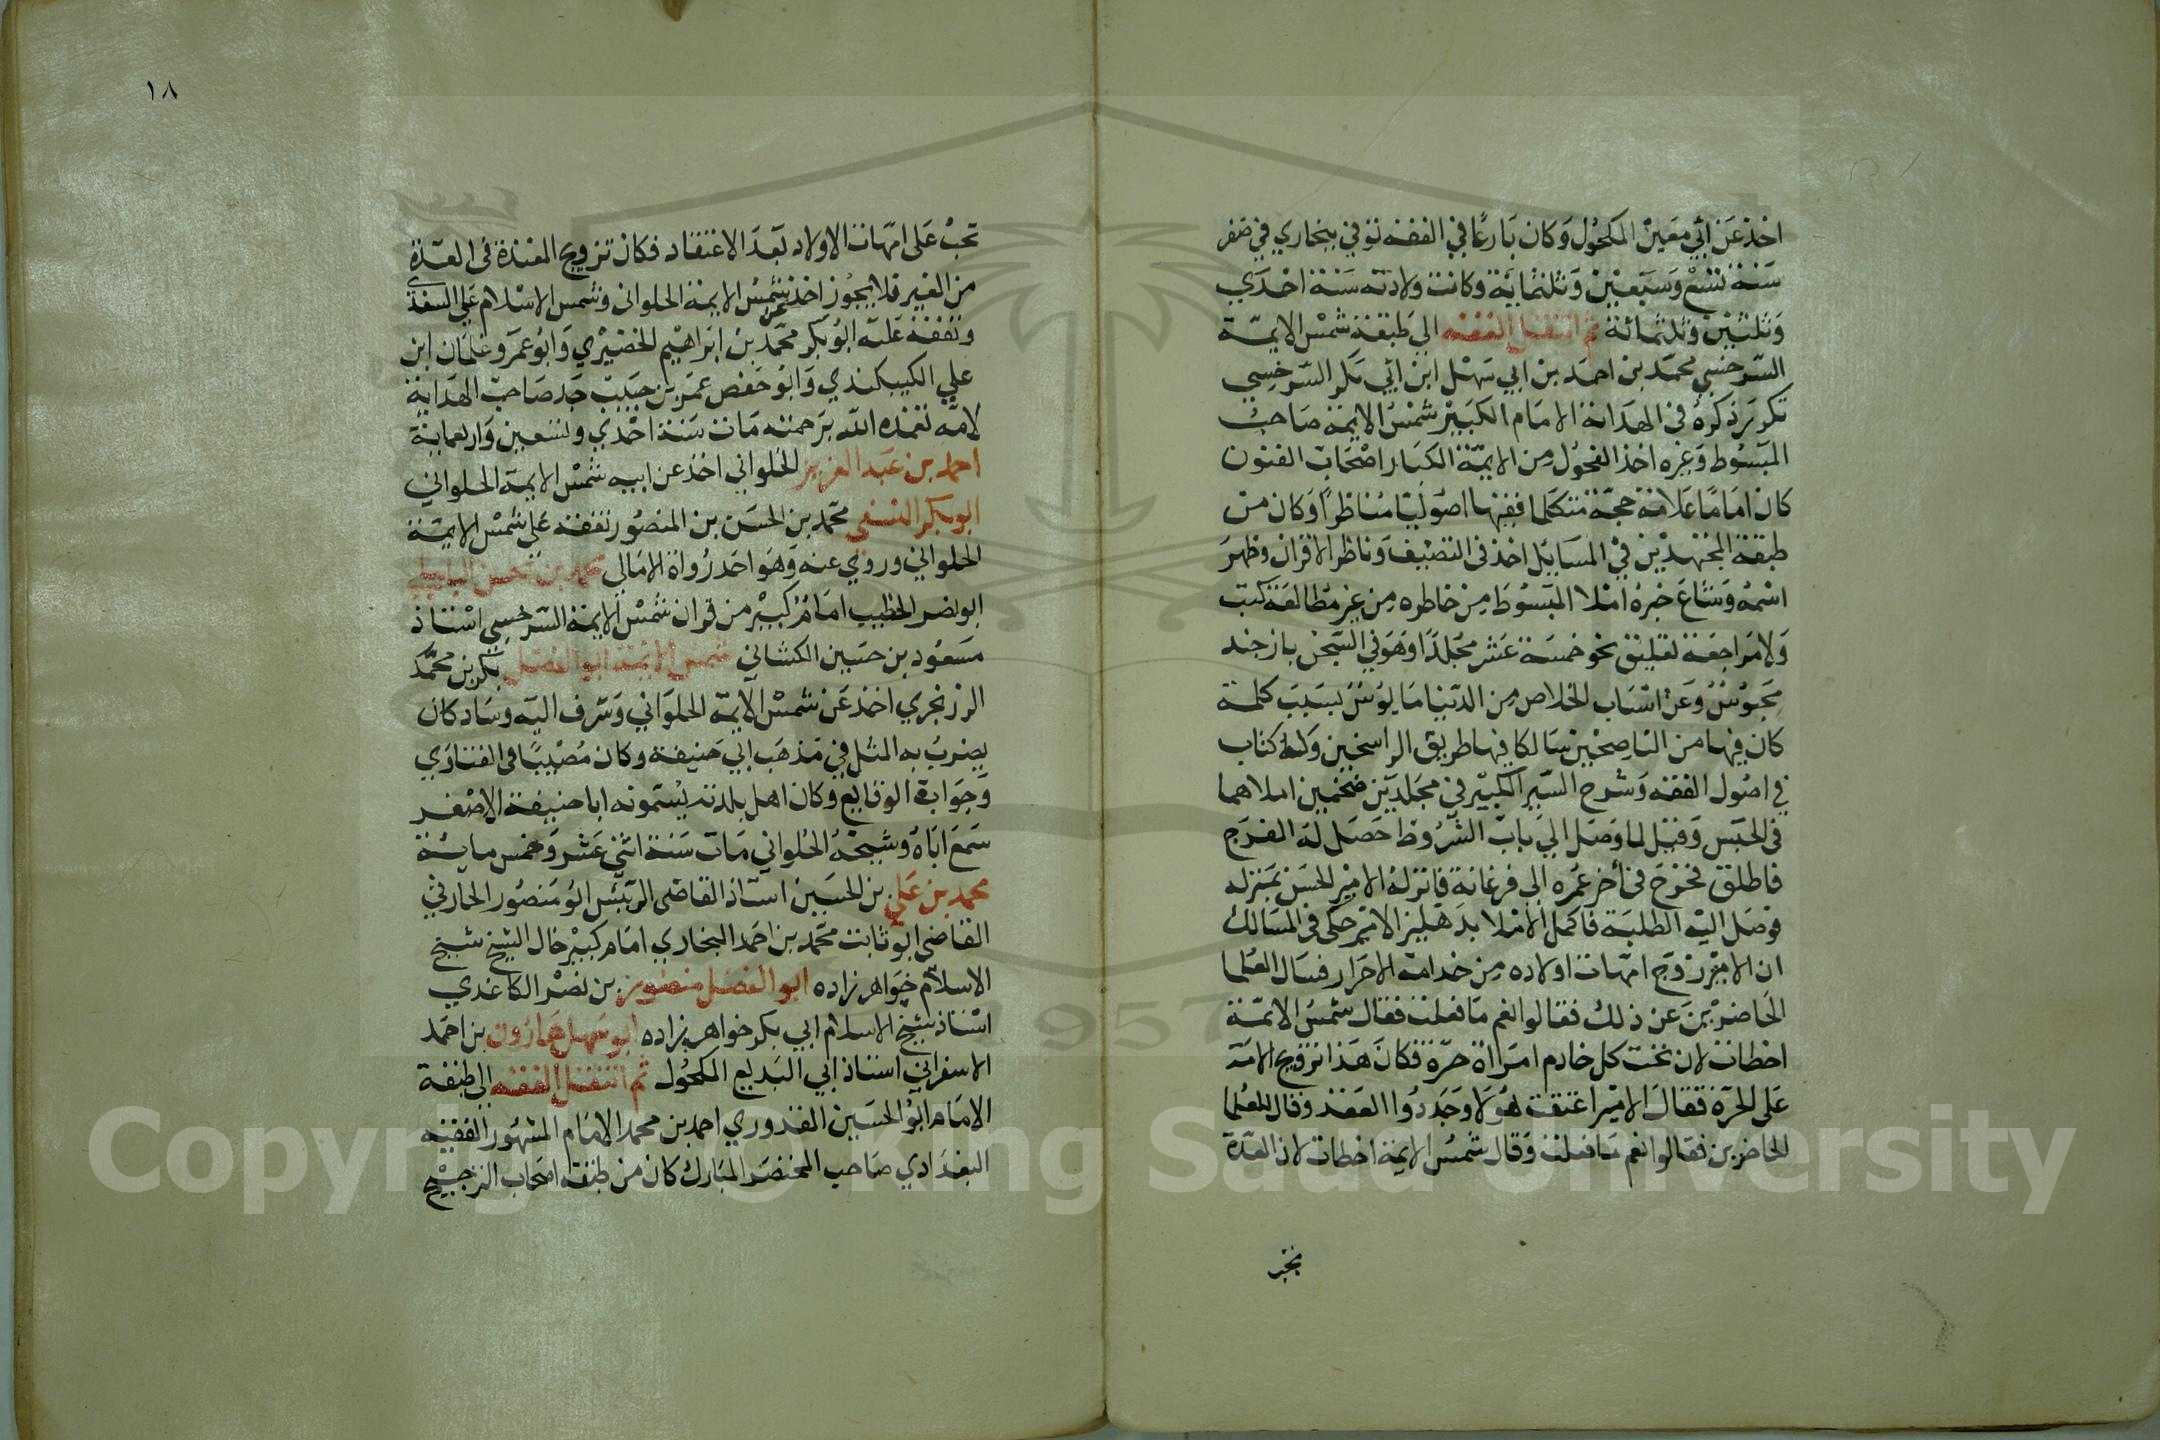 اخذ عن ابي معين المكحول وكان بارعا في الفقه توفي ببخاري في صفر
سنة تسع وسبعين وثلثماية وكانت ولادته سنة احدي
وثلثين وثلثمائة ثم انتقل الفقه الي طبقة شمس الايمة
السرخسي محمد بن احمد بن ابي سهل ابن ابي بكر السرخسي
تكرر ذكره في الهداية الامام الكبير شمس الايمة صاحب
المبسوط وغيره احد الفحول من الايمة الكبار اصحاب الفنون
كان اماما علامة حجة متكلما فقيها اصوليا مناظرا وكان من
طبقة المجتهدين في المسايل اخذ في التصنيف وناظر الاقران وظهر
اسمه وشاع خبره املا المبسوط من خاطره من غير مطالعة كتب
ولا مراجعة تعليق نحو خمسة عشر مجلدا وهو في السجن باز جند
محبوس وعن اسباب الخلاص من الدنيا مايوس بسبب كلمة
كان فيها من الناصحين سالكا فيها طريق الراسخين وله كتاب
في اصول الفقه وشرح السير الكبير في مجلدين ضخمين املاهما
في الحبس وقيل لما وصل الي باب الشروط حصل له الفرج
فاطلق فخرج في أخر عمره الي فرغانة فانزله الامير الحسن بمنزله
فوصل اليه الطلبة فاكمل الاملا بدهليز الامير حكى في المسالك
ان الامير زوج امهات اولاده من خدامه الاحرار فسال العلما
الحاضرين عن ذلك فقالوا نعم ما فعلت فقال شمس الائمة
اخطات لان تحت كل خادم امراة حرة فكان هذا تزويج الامة
على الحرة فقال الامير اعتقت هولا وجددوا العقد وقال للعلما
الحاضرين فقالوا نعم ما فعلت وقال شمس الايمة اخطات لان العدة
تجب
١٨
تجب على امهات الاولاد بعد الاعتقاد فكان تزويج المعتدة في العدة
من الغير فلا يجوز اخذ عن شمس الايمة الحلواني وشمس الاسلام علي السغدي
وتفقه عليه ابوبكر محمد بن ابراهيم الحضيري وابو عمرو عثمان ابن
علي الكيبكندي وابو حفص عمر بن حبيب جد صاحب الهداية
لامه تغمده الله برحمته مات سنة احدي وتسعين واربعماية
احمد بن عبد العزيز الحلواني اخذ عن ابيه شمس الايمة الحلواني
ابوبكر النسفي محمد بن الحسن بن المنصور تفقه علي شمس الايمة
الحلواني وروي عنه وهو احد رواة الامالي محمد بن حسن
ابو نصر الخطيب امام كبير من قران شمس الايمة السرخسي استاذ
مسعود بن حسين الكشاني شمس الايمة ابو الفضل بكر بن محمد
الزرنجري اخذ عن شمس الايمة الحلواني وشرف اليه وساد كان
يضرب به المثل في مذهب ابي حنيفة وكان مصيبا في الفتاوي
وجوابة الوقايع وكان اهل بلدته يسمونه ابا حنيفة الاصغر
سمع اباه وشيخه الحلواني مات سنة اثني عشر وخمس ماية
محمد بن علي بن الحسين استاذ القاضي الرئيس ابو منصور الحارثي
القاضي ابو ثابت محمد بن احمد البخاري امام كبير خال الشيخ شيخ
الاسلام خواهر زاده ابو الفضل منصور بن نصر الكاغدي
استاذ شيخ الاسلام ابي بكر خواهر زاده ابو سهل هارون بن احمد
الاسفراني استاذ ابي البديع المكحول ثم انتقل الفقه الي طبقة
الامام ابو الحسين القدوري احمد بن محمد الامام المشهور الفقيه
البغدادي صاحب المختصر المبارك كان من طبقة اصحاب الترجيح
1957
Copyright © King Saud University